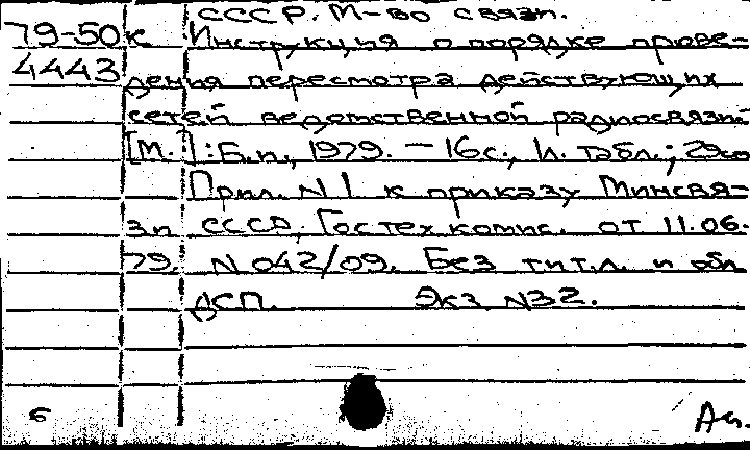 СССР. М-во связи.
79-50к Инструкция о порядке прове-
4443 дения пересмотра действующих
сетей ведомственной радиосвязи.
[М.]: Б.и., 1979. — 16с., 1л. табл.; 29см
Прил. N 1 к приказу Минсвя-
зи СССР, Гостехкомис. от 11.06.
79. N 042/09. Без тит.л. и обл
ДСП. Экз N32.
6